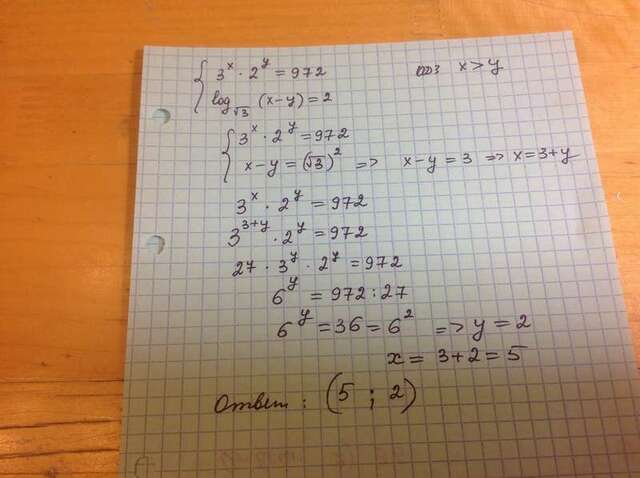 { 3^x · 2^y = 972 ОДЗ x > y
log_√3 (x-y) = 2
{ 3^x · 2^y = 972
x - y = (√3)^2 => x - y = 3 => x = 3 + y
3^x · 2^y = 972
3^{3+y} · 2^y = 972
27 · 3^y · 2^y = 972
6^y = 972 : 27
6^y = 36 = 6^2 => y = 2
x = 3 + 2 = 5
Ответ: (5 ; 2)